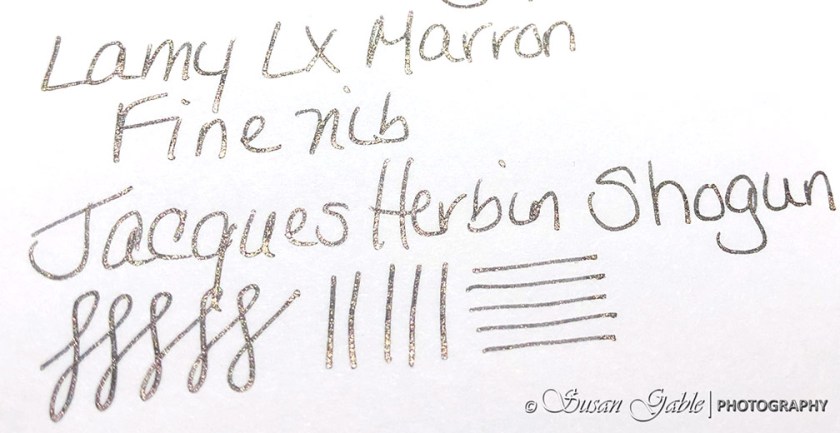 Lamy Lx Marron
Fine nib
Jacques Herbin Shogun
© Susan Gable | PHOTOGRAPHY